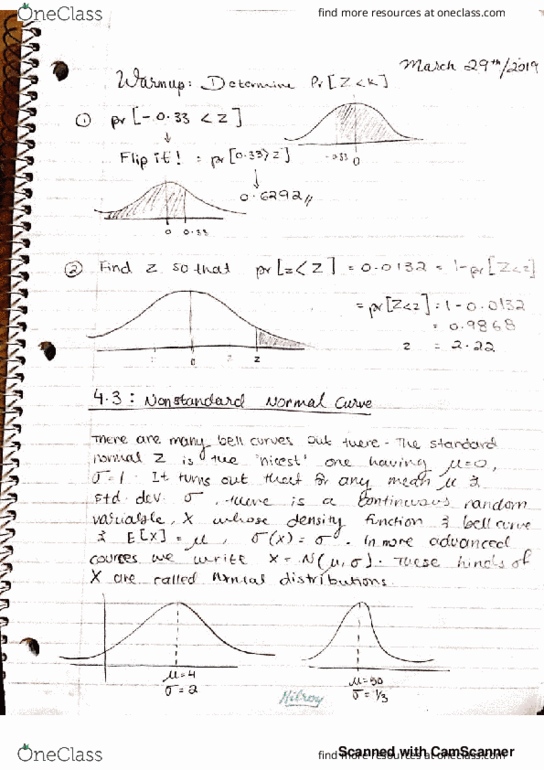 OneClass
find more resources at oneclass.com
March 29th/2019
Warmup: Determine Pr[Z<k]
① pr[-0.33 < Z]
Flip it! = pr[0.33>Z]
-0.33 0
0.6292,,
0 0.33
② Find Z so that pr[z<Z] = 0.0132 = 1-pr[Z<z]
= pr[Z<z] = 1-0.0132
= 0.9868
z = 2.22
0 z
4.3: Nonstandard Normal Curve
There are many bell curves out there. The standard
normal Z is the 'nicest' one having μ=0,
σ=1. It turns out that for any mean μ &
std. dev. σ, there is a continuous random
variable, X whose density function & bell curve
& E[X] = μ, σ(X) = σ. In more advanced
cources we write X ~ N(μ, σ). These kinds of
X are called normal distributions.
μ=4
σ=2
μ=90
σ=1/3
Hilroy
OneClass
Scanned with CamScanner
find more resources at oneclass.com